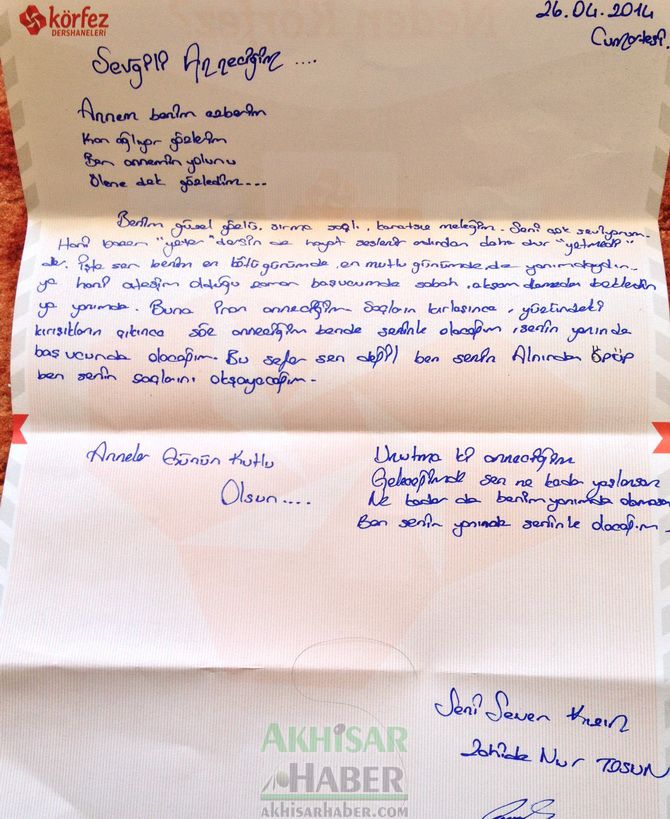 körfez
DERSHANELERİ
26.04.2014
Cumartesi.
Sevgili Anneciğim ....
Annem benim ezberim
Kan ağlıyor gözlerim
Ben annemin yolunu
Ölene dek gözledim...
Benim güzel gözlü, sırma saçlı, kanatsız meleğim. Seni çok seviyorum.
Hani bazen "yeter" dersin ve hayat seslenir ardından daha dur "yetmedi"
der. İşte sen benim en kötü günümde, en mutlu günümde de yanımdaydın.
ya hani ateşim olduğu zaman başucumda sabah, akşam demeden bekledin
ya yanımda. Buna inan anneciğim saçların kırlaşınca, yüzündeki
kırışıkların çıkınca söz anneciğim bende seninle olacağım, senin yanında
baş ucunda olacağım. Bu sefer sen değil ben senin Alnından Öpüp
ben senin saçlarını okşayacağım.
Anneler Günün Kutlu
Olsun....
Unutma ki anneciğim
Geleceğimde sen ne kadar yaşlansan
Ne kadar da benim yanımda olamasan
Ben senin yanında seninle olacağım..
Seni Seven Kızın
Zahide Nur TOSUN
AKHİSAR
HABER
AKHISARHABER.COM